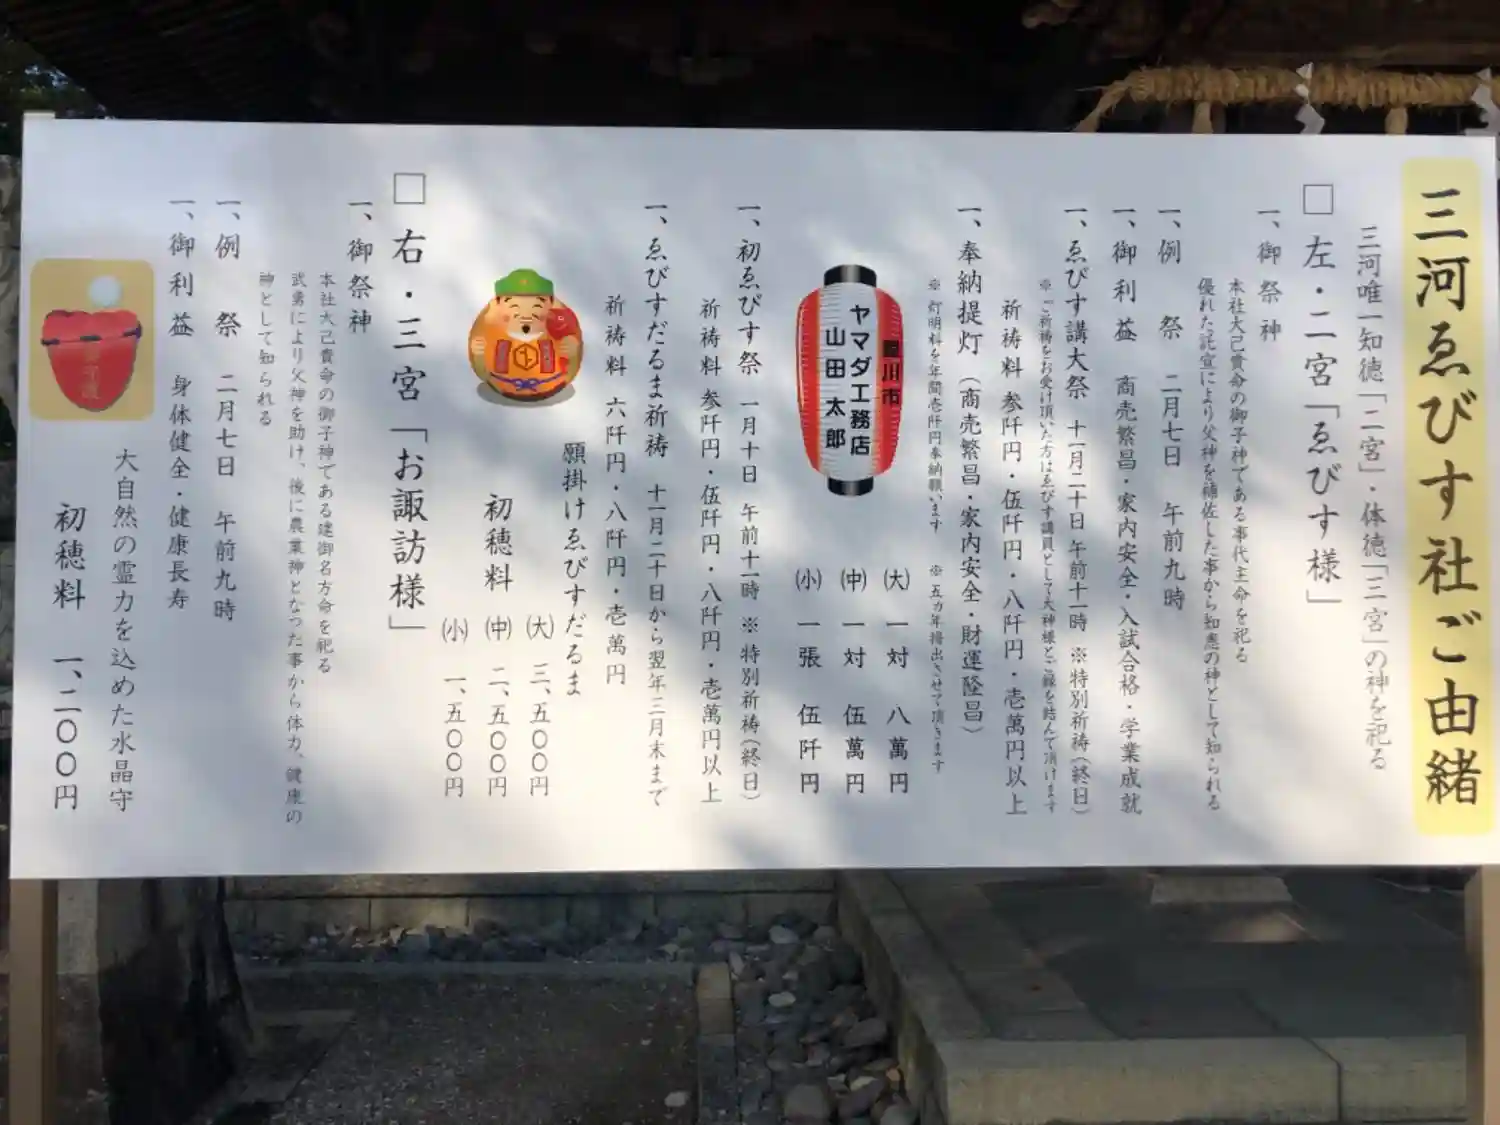 三河ゑびす社ご由緒
三河唯一知徳「二宮」・体徳「三宮」の神を祀る
□ 左・二宮「ゑびす様」
一、御祭神
本社大己貴命の御子神である事代主命を祀る
優れた託宣により父神を補佐した事から知恵の神として知られる
一、例 祭 二月七日 午前九時
一、御利益 商売繁昌・家内安全・入試合格・学業成就
一、ゑびす講大祭 十一月二十日 午前十一時 ※特別祈祷(終日)
※ご祈祷をお受け頂いた方はゑびす講員として大神様とご縁を結んで頂けます
祈祷料 参阡円・伍阡円・八阡円・壱萬円以上
一、奉納提灯(商売繁昌・家内安全・財運隆昌)
※灯明料を年間壱阡円奉納願います ※五カ年掲出させて頂きます
(大) 一対 八萬円
(中) 一対 伍萬円
(小) 一張 伍阡円
川市
ヤマダ工務店
山田太郎
一、初ゑびす祭 一月十日 午前十一時 ※特別祈祷(終日)
祈祷料 参阡円・伍阡円・八阡円・壱萬円以上
一、ゑびすだるま祈祷 十一月二十日から翌年三月末まで
祈祷料 六阡円・八阡円・壱萬円
願掛けゑびすだるま
初穂料
(大) 三、五〇〇円
(中) 二、五〇〇円
(小) 一、五〇〇円
□ 右・三宮「お諏訪様」
一、御祭神
本社大己貴命の御子神である建御名方命を祀る
武勇により父神を助け、後に農業神となった事から体力、健康の
神として知られる
一、例 祭 二月七日 午前九時
一、御利益 身体健全・健康長寿
大自然の霊力を込めた水晶守
初穂料 一、二〇〇円